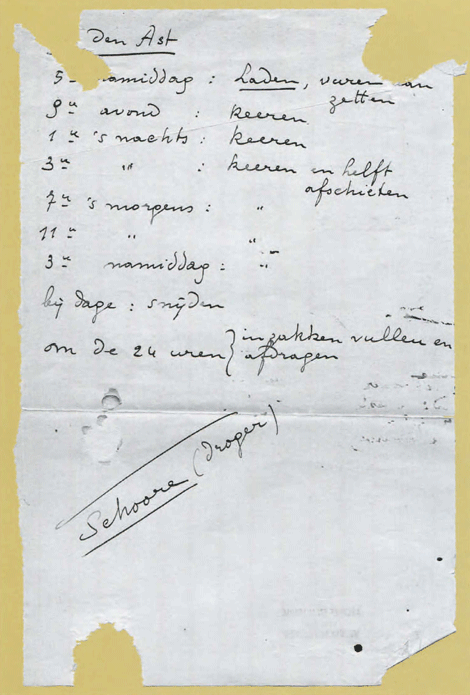 Den Ast
5 u namiddag : laden, vuren aan
zetten
9 u avond : keeren
1 u 's nachts : keeren
3 u " : keeren en helft
afschieten
7 u 's morgens : "
11 u " "
3 u namiddag : "
bij dage : snijden
om de 24 uren } in zakken vullen en
afdragen
Schoore (droger)